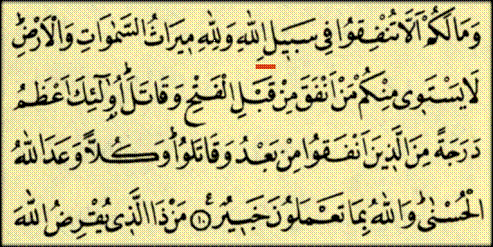 وَمَا لَكُمْ اَلَّا تُنْفِقُوا فِى سَبِيلِ اللّٰهِ وَلِلّٰهِ مِيرَاثُ السَّمٰوَاتِ وَالْاَرْضِۜ
لَا يَسْتَوِى مِنْكُمْ مَنْ اَنْفَقَ مِنْ قَبْلِ الْفَتْحِ وَقَاتَلَۜ اُو۬لٰٓئِكَ اَعْظَمُ
دَرَجَةً مِنَ الَّذِينَ اَنْفَقُوا مِنْ بَعْدُ وَقَاتَلُواۜ وَكُلًّا وَعَدَ اللّٰهُ
الْحُسْنٰىۜ وَاللّٰهُ بِمَا تَعْمَلُونَ خَبِيرٌ۟ ﴿١٠﴾ مَنْ ذَا الَّذِى يُقْرِضُ اللّٰهَ